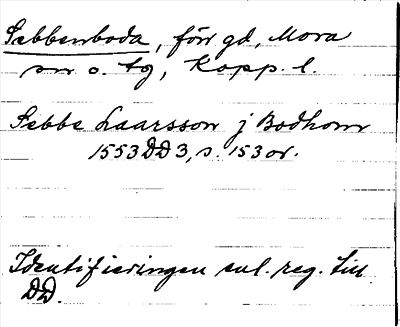 Sebbenboda, förr gd, Mora
sn o. tg, Kopp. l.
Sebbe Laarsson j Bodhom
1553 DD 3, s. 153 or.
Identifieringen enl. reg. till
DD.